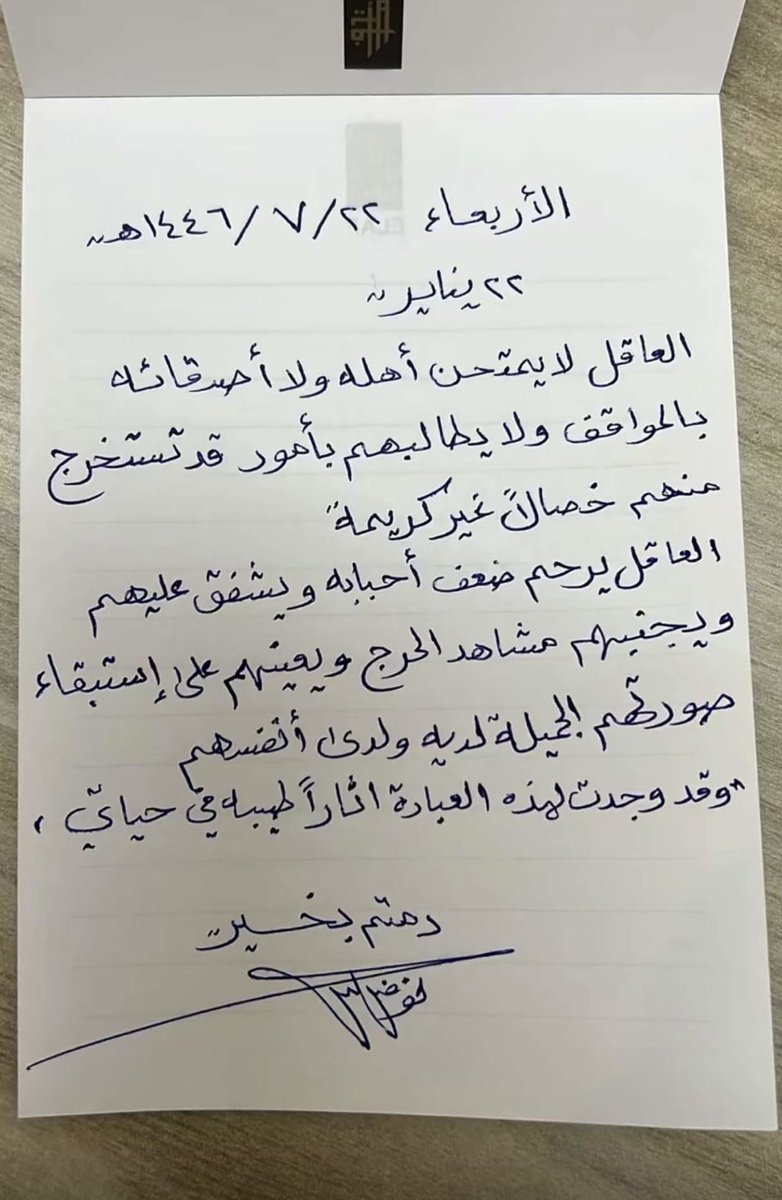 الأربعاء ٢٢/٧/١٤٤٦هـ
٢٢ يناير
العاقل لا يمتحن أهله ولا أصدقائه
بالمواقف ولا يطالبهم بأمور قد تستخرج
منهم خصالاً غير كريمة
العاقل يرحم ضعف أحبابه ويشفق عليهم
ويجنبهم مشاهد الحرج ويعينهم على إستبقاء
صورتهم الجميلة لديه ولدى أنفسهم
"وقد وجدت لهذه العبادة اثاراً طيبه في حياتي،
دمتم بخير